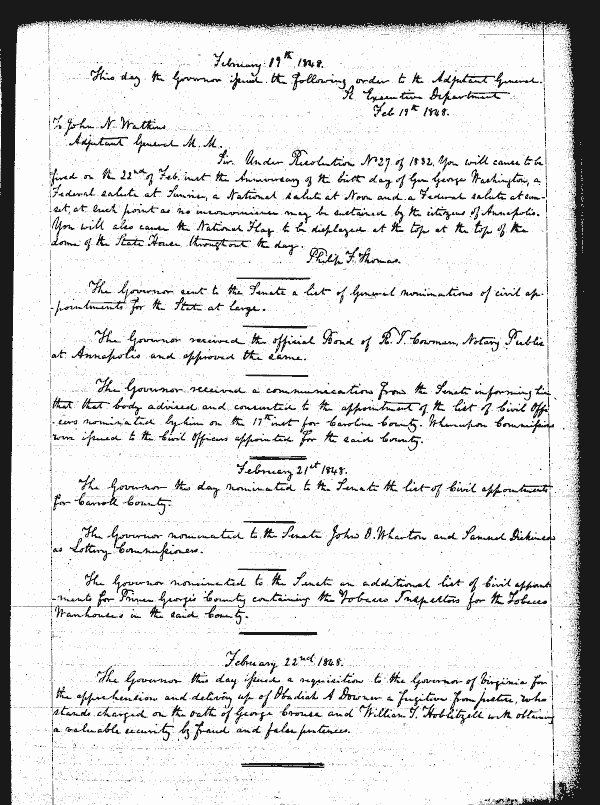 February 19th 1848.
This day the Governor issued the following order to the Adjutant General.
Executive Department
Feb 19th 1848.
To John N. Watkins
Adjutant General M. M.
Sir. Under Resolution No 27 of 1832, You will cause to be
fired on the 22nd of Feb. inst the Anniversary of the birth day of Gen George Washington, a
Federal salute at Sunrise, a National salute at Noon and a Federal salute at sun-
set, at such point as no inconvenience may be sustained by the citizens of Annapolis.
You will also cause the National Flag to be displayed at the top at the top of the
dome of the State House throughout the day.
Philip F. Thomas.
The Governor sent to the Senate a list of General nominations of civil ap-
-pointments for the State at large.
The Governor received the official Bond of R. T. Cowman, Notary Public
at Annapolis and approved the same.
The Governor received a communication from the Senate informing him
that that body advised and consented to the appointment of the list of Civil Offi
-cers nominated by him on the 17th inst for Caroline County. Whereupon Commissions
were issued to the Civil Officers appointed for the said County.
February 21st 1848.
The Governor this day nominated to the Senate the list of Civil appointments
for Carroll County.
The Governor nominated to the Senate John O. Wharton and Samuel Dickinson
as Lottery Commissioners.
The Governor nominated to the Senate an additional list of Civil appoint
-ments for Prince George's County containing the Tobacco Inspectors for the Tobacco
Warehouses in the said County.
February 22nd 1848.
The Governor this day issued a requisition to the Governor of Virginia for
the apprehension and delivery up of Obadiah A Downer a fugitive from justice, who
stands charged on the oath of George Crouse and William T. Hoblitzell with obtaining
a valuable security by fraud and false pretences.